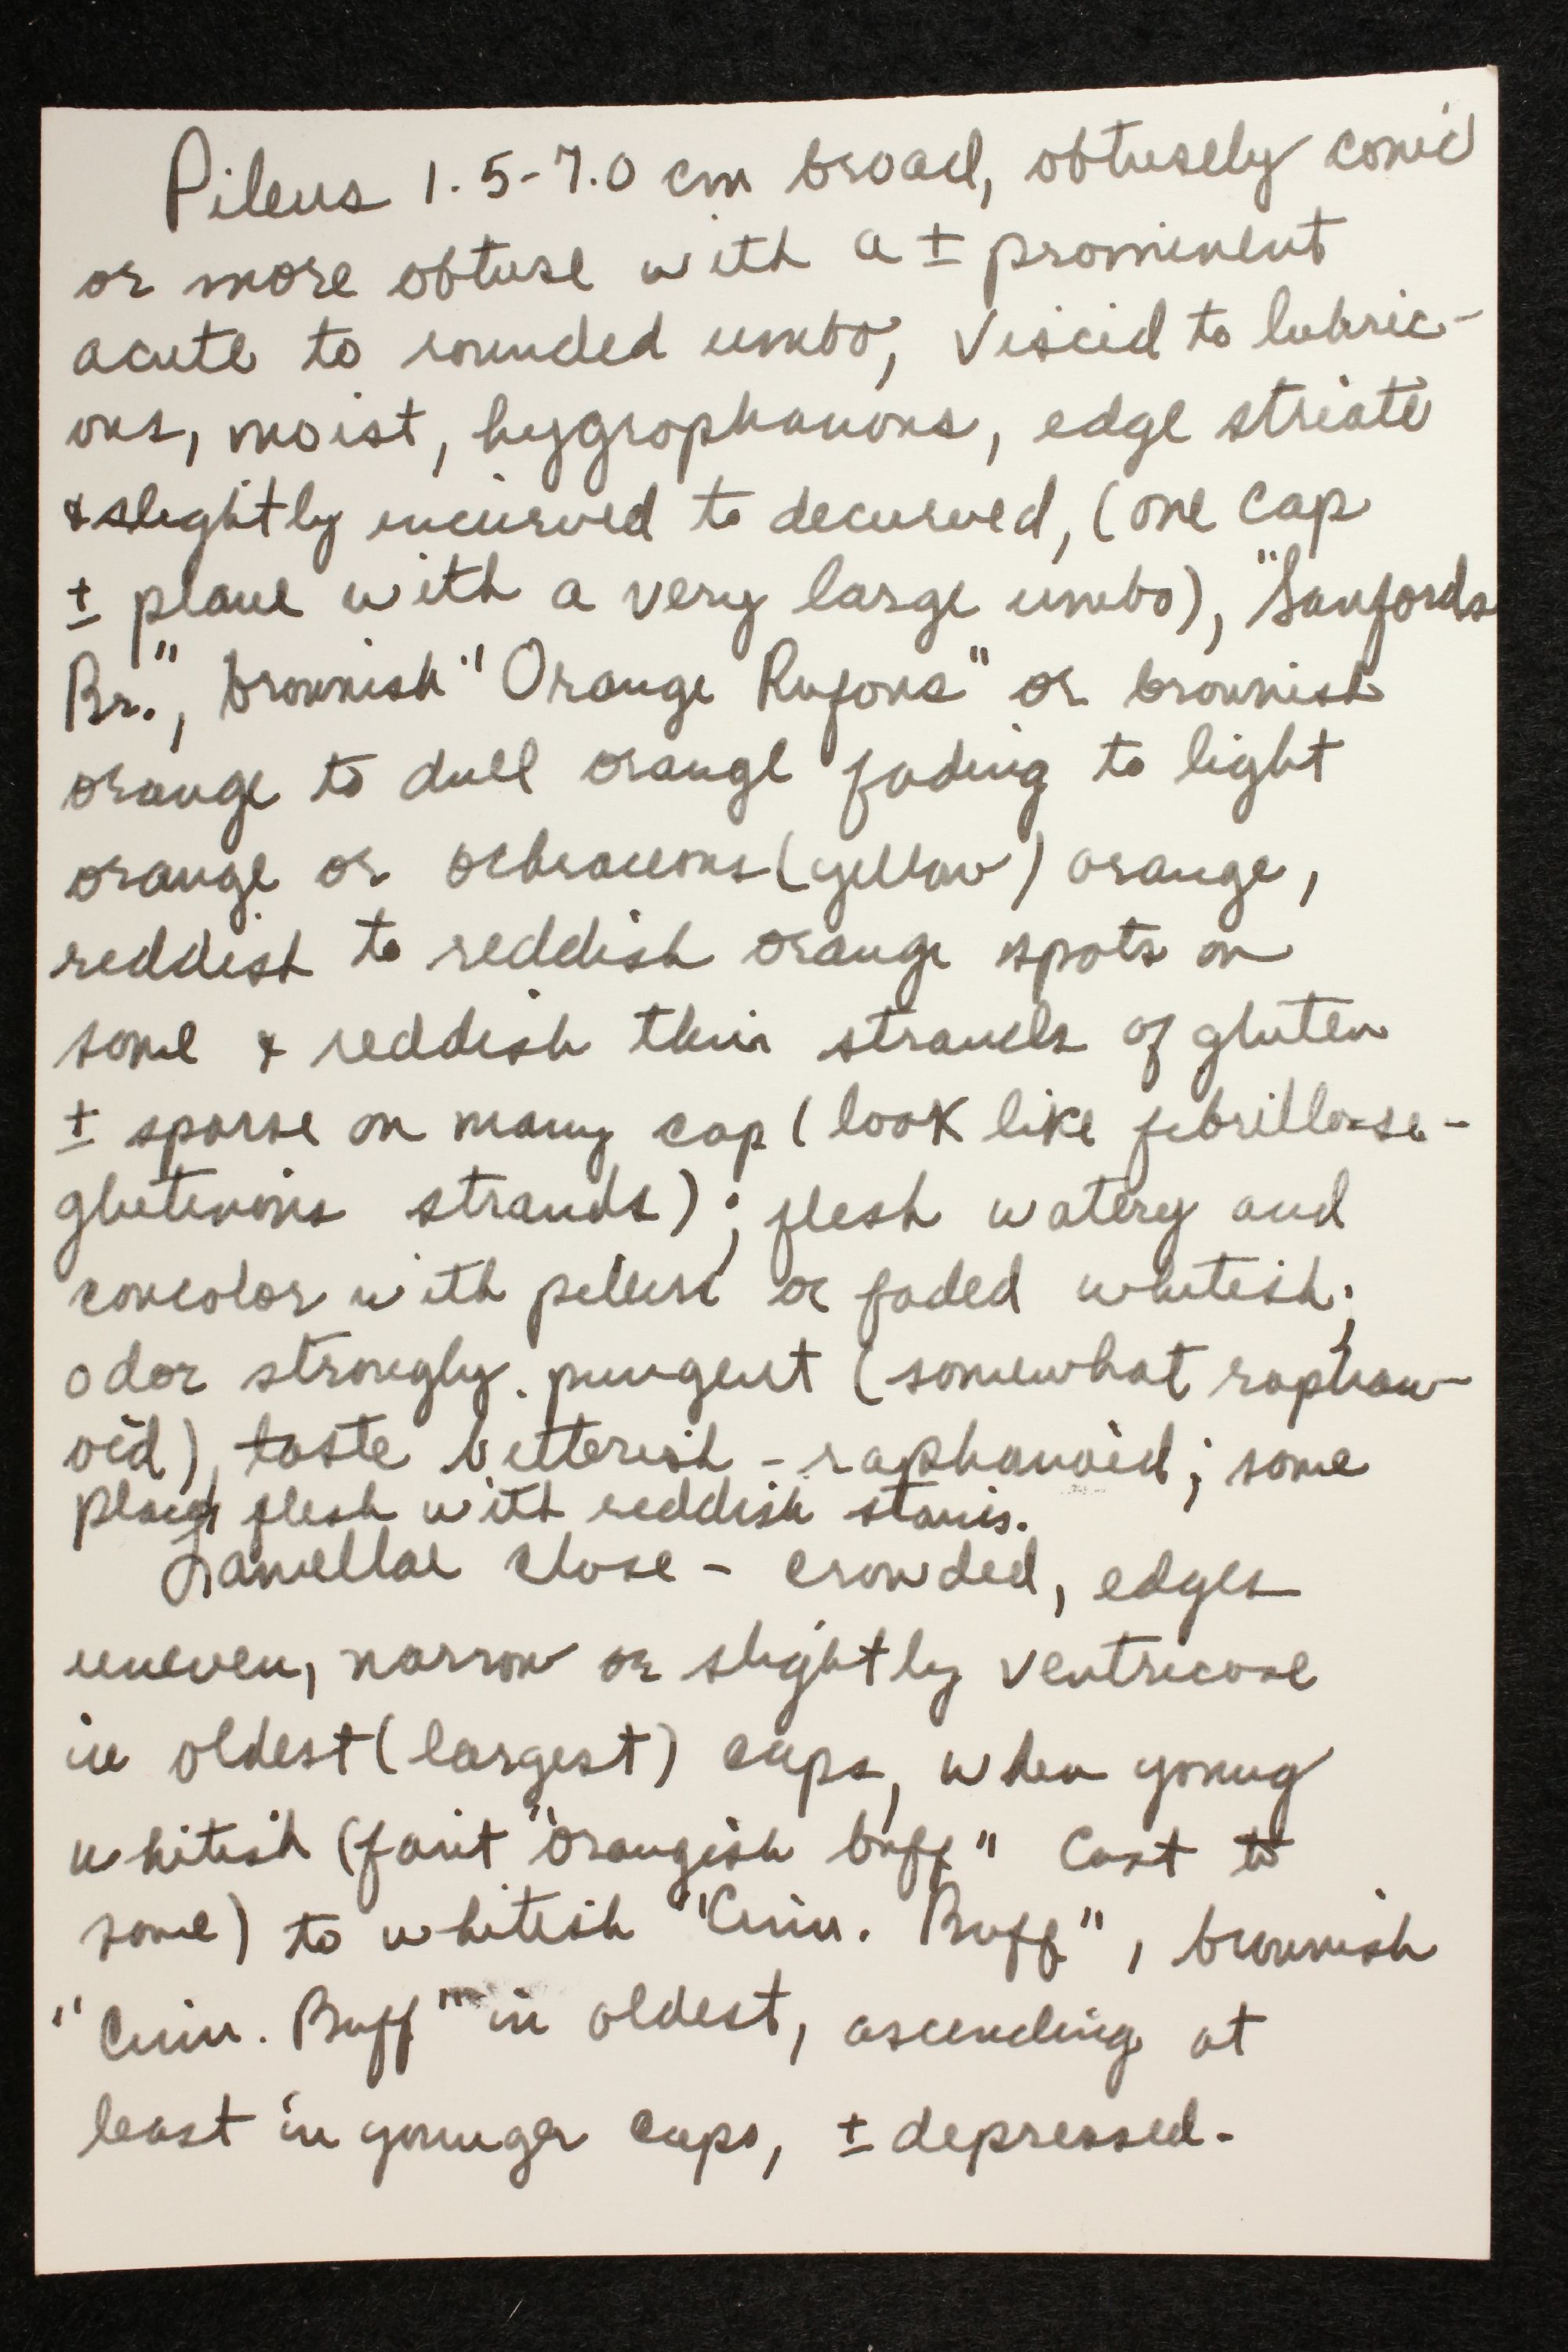 Pileus 1.5-7.0 cm broad, obtusely conic
or more obtuse with a ± prominent
acute to rounded umbo, viscid to lubric-
ous, moist, hygrophanous, edge striate
& slightly incurved to decurved, (one cap
± plane with a very large umbo), "Sanfords
Br.", brownish "Orange Rufous" or brownish
orange to dull orange fading to light
orange or ochraceous (yellow) orange,
reddish to reddish orange spots on
some & reddish thin strands of gluten
± sparse on many cap (look like fibrillose-
glutenous strands); flesh watery and
concolor with pileus or faded whitish;
odor strongly pungent (somewhat raphan-
oid), taste bitterish - raphanoid; some
flesh with reddish stains.
Lamellae close - crowded, edges
uneven, narrow or slightly ventricose
in oldest (largest) caps, when young
whitish (faint "orangish buff" cast to
some) to whitish "Cinn. Buff", brownish
"Cinn. Buff" in oldest, ascending at
least in younger caps, ± depressed.